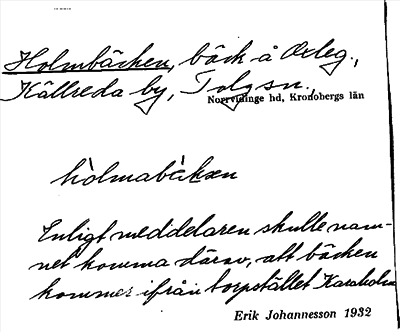 Holmbäcken, bäck å Oxleg.,
Källreda by, Tolgsn.,
Norrvidinge hd, Kronobergs län
hòlmabæ̀kæn
Enligt meddelaren skulle nam-
net komma därav, att bäcken
kommer ifrån torpstället Karaholm
Erik Johannesson 1932